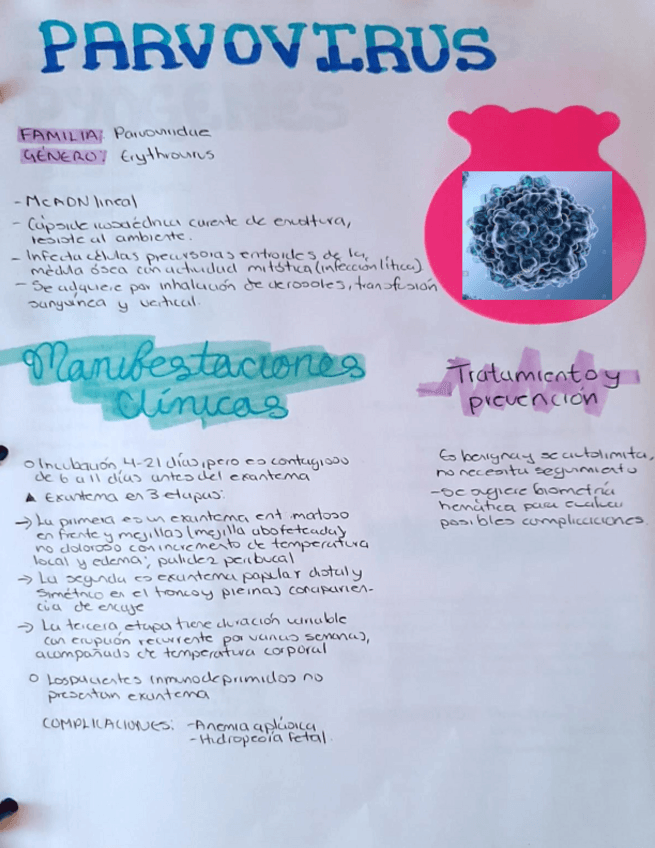 PARVOVIRUS
FAMILIA: Parvoviridae
GÉNERO: Erythrovirus
- McADN lineal
- Cápside icosaédrica carente de envoltura,
resiste al ambiente.
- Infecta células precursoras eritroides de la
médula ósea con actividad mitótica (infección lítica)
- Se adquiere por inhalación de aerosoles, transfusión
sanguínea y vertical.
Manifestaciones
clínicas
o Incubación 4-21 días, pero es contagioso
de 6 a 11 días antes del exantema
▲ Exantema en 3 etapas:
→ La primera es un exantema eritematoso
en frente y mejillas (mejilla abofeteada)
no doloroso con incremento de temperatura
local y edema; palidez peribucal
→ La segunda es exantema papular distal y
simétrico en el tronco y piernas con aparien-
cia de encaje
→ La tercera etapa tiene duración variable
con erupción recurrente por varias semanas,
acompañado de temperatura corporal
o Los pacientes inmunodeprimidos no
presentan exantema
COMPLICACIONES: - Anemia aplásica
- Hidropesía fetal.
Tratamiento y
prevención
Es benigna y se autolimita,
no necesita seguimiento
- Se sugiere biometría
hemática para evaluar
posibles complicaciones.